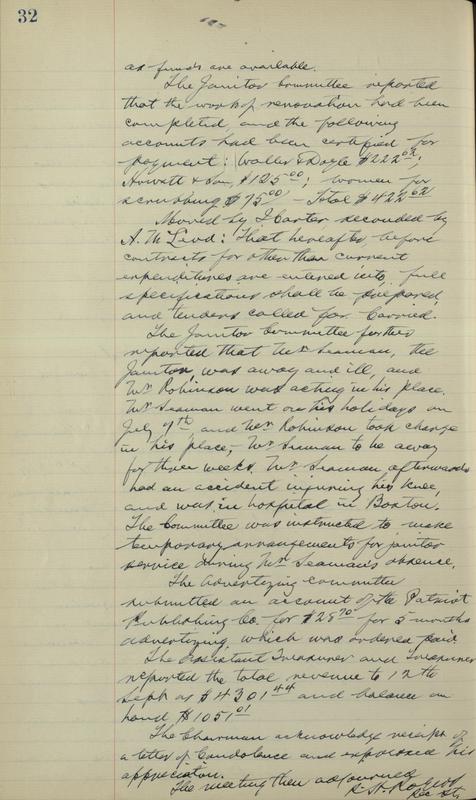 32
as funds are available.
The Janitor Committee reported
that the work of renovation had been
completed, and the following
accounts had been certified for
payment: Waller & Doyle $222.62;
Howatt & Son, $125.00; women for
scrubbing $75.00 – Total $422.62
Moved by I Carter seconded by
A. McLeod: That hereafter, before
contracts for other than current
expenditures are entered into, full
specifications shall be prepared,
and tenders called for. Carried.
The Janitor Committee further
reported that Mr. Seaman, the
Janitor, was away and ill, and
Mr. Robinson was acting in his place.
Mr. Seaman went on his holidays on
July 7th and Mr. Robinson took charge
in his place, Mr. Seaman to be away
for three weeks. Mr. Seaman afterwards
had an accident injuring his knee,
and was in hospital in Boston.
The Committee was instructed to make
temporary arrangements for janitor
service during Mr. Seaman's absence.
The Advertizing committee
submitted an account of the Patriot
Publishing Co. for for 5 months
advertizing, which was ordered paid.
The Assistant Treasurer and Treasurer
reported the total revenue to 12th
Sept as $4301.44 and balance on
hand $1051.01
The Chairman acknowledge receipt of
a letter of Condolence and expressed his
appreciation.
The meeting then adjourned
Rec. Sty.